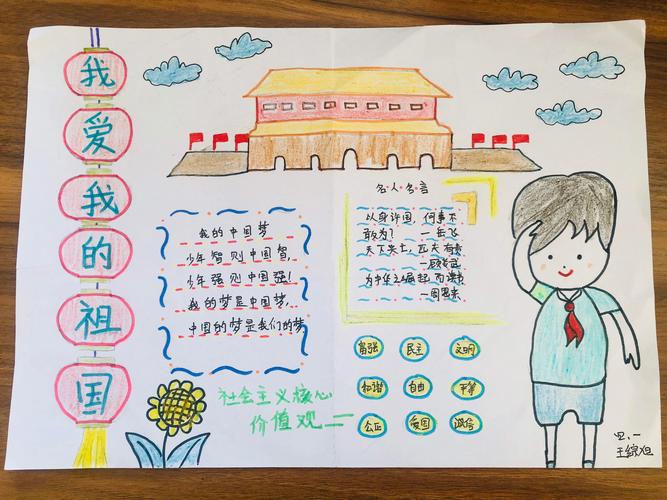 我爱我的祖国
名人名言
我的中国梦
少年智则中国智,
少年强则中国强!
我的梦是中国梦,
中国的梦是我们的梦
以身许国,何事不
敢为? —岳飞
天下兴亡,匹夫有责
—顾炎武
为中华之崛起而读书
—周恩来
富强 民主 文明
和谐 自由 平等
公正 爱国 诚信
社会主义核心
价值观
四.一